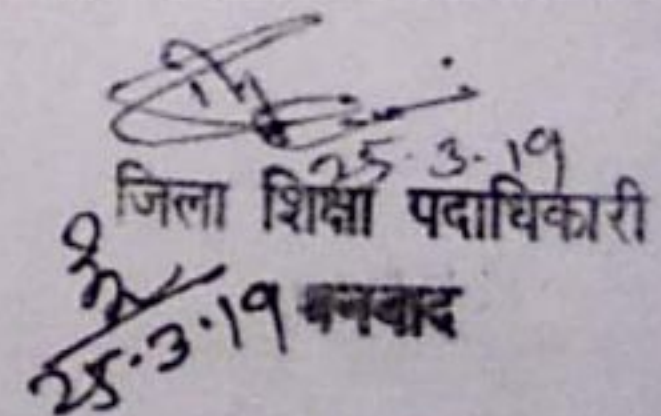 25.3.19
जिला शिक्षा पदाधिकारी
25.3.19 धनबाद